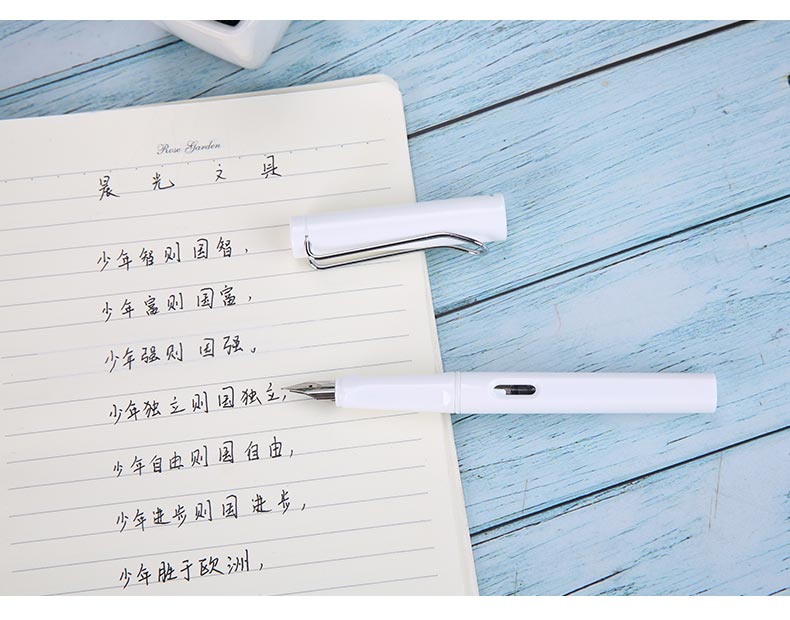 Rose Garden
晨光文具
少年智则国智，
少年富则国富，
少年强则国强。
少年独立则国独立，
少年自由则国自由，
少年进步则国进步，
少年胜于欧洲，